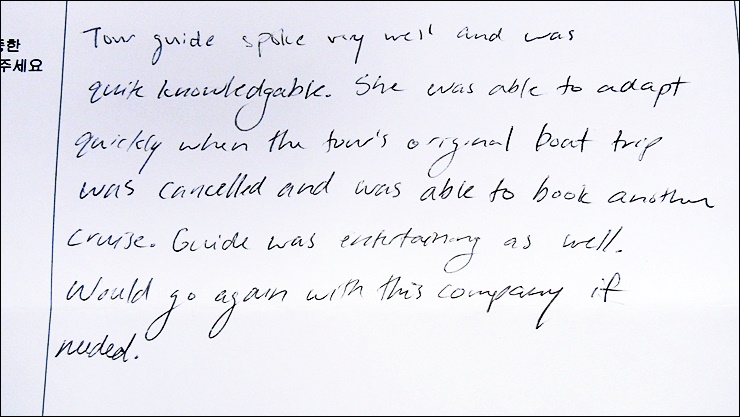 중한
주세요
Tour guide spoke very well and was
quite knowledgable. She was able to adapt
quickly when the tour's original boat trip
was cancelled and was able to book another
cruise. Guide was entertaining as well.
Would go again with this company if
needed.